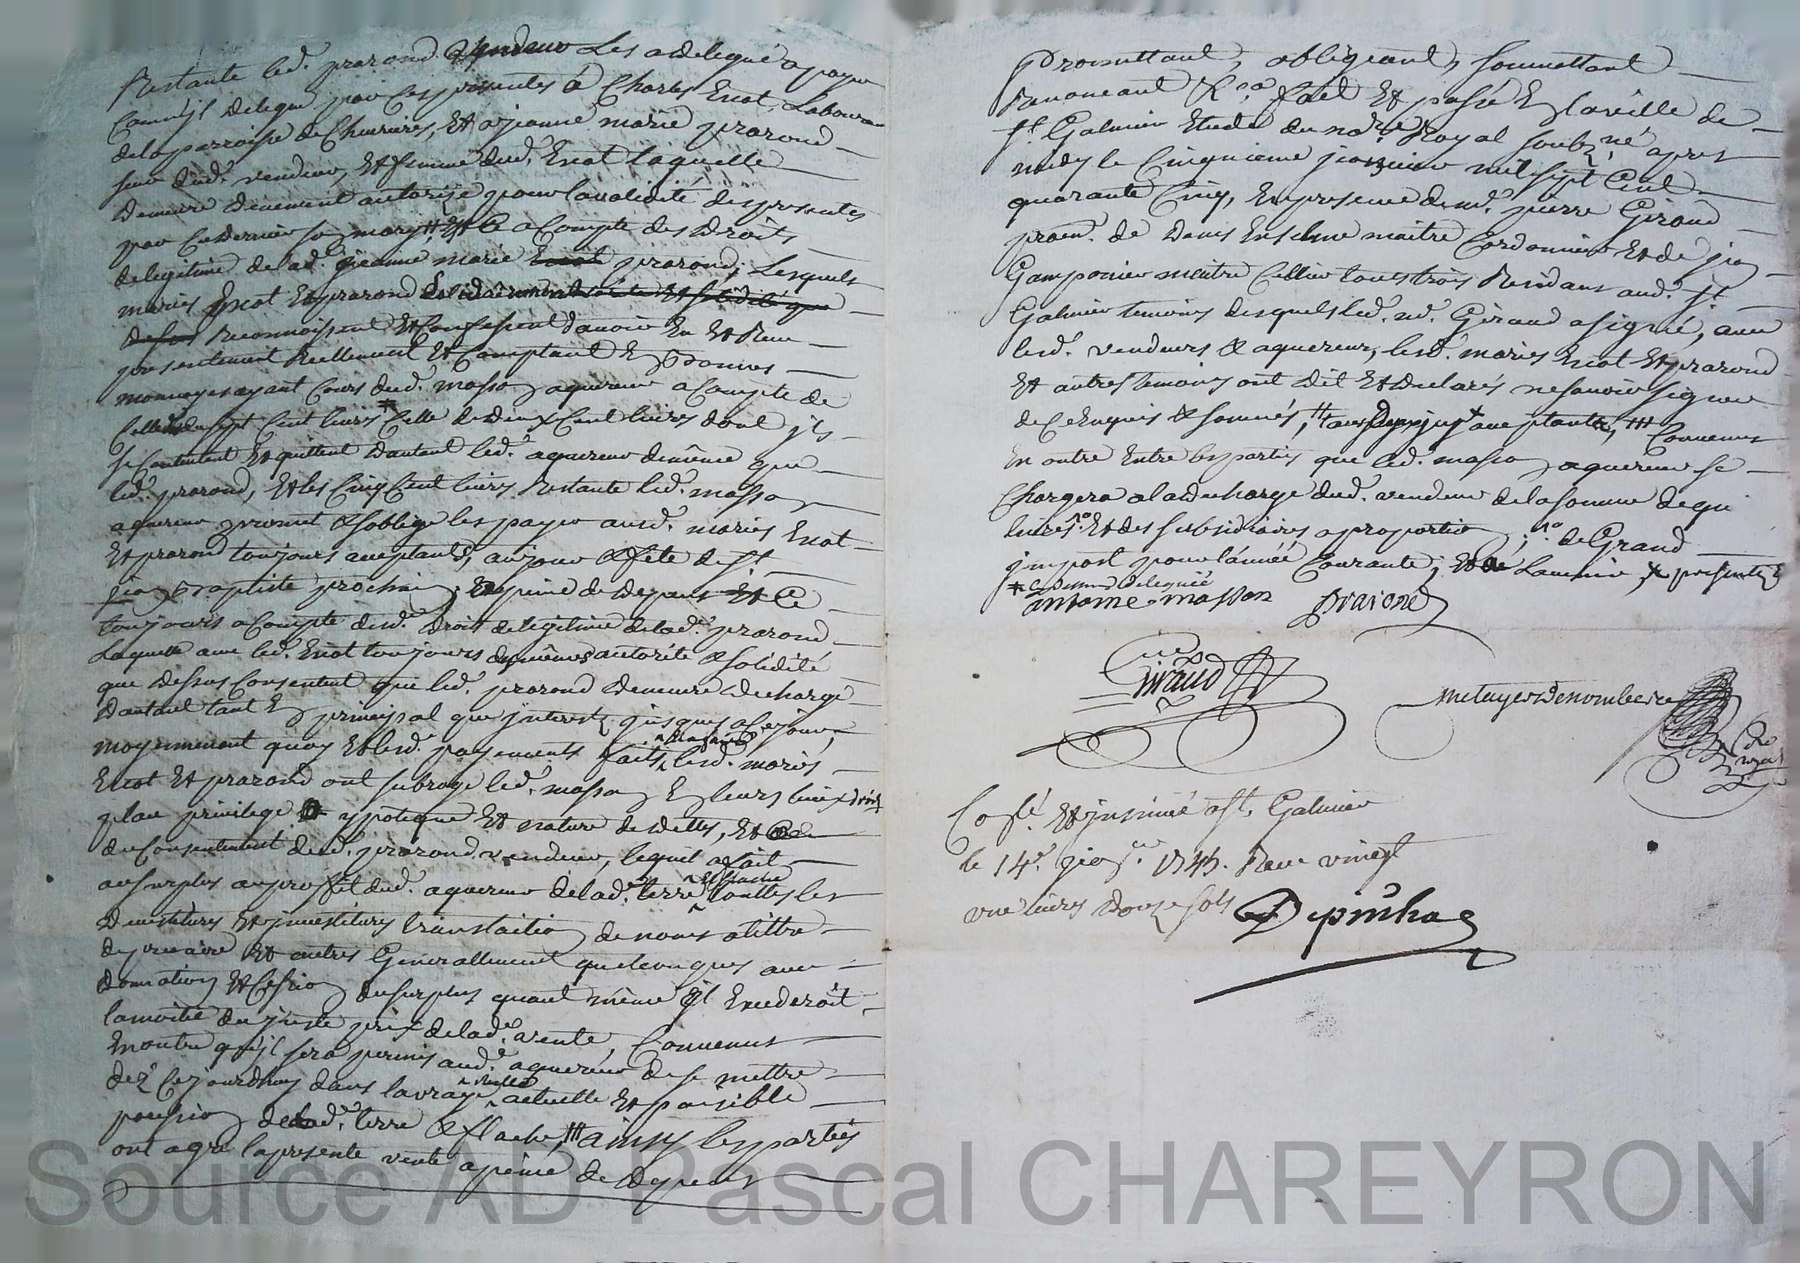 Restante led. prarond vendeur Les a delegué a payer
Comm'jl delegue par Ces presentes à Charles Encot, Laboureur
de la parroisse de Chevrieres, Et a jeanne marie prarond
seur dud. vendeur, Et femme dud. Encot laquelle
Demeure deuement autorisée pour la validité des presentes
par Ce Dernier so mary # Et Ce a Compte des Droits
de legitime de lad. jeanne marie prarond, Lesquels
mariés Encot Et prarond
Reconnoissent Et Confessent d'avoir Eu Et Receu
presentement Reellement Et Comptant En Bonnes
monnoyes ayant Cours dud. masson aquereur a Compte de
Celle de sept Cent livres Celle de Deux Cent livres dont jls
se Contentent Et quittent Dautant led. aquereur de même que
led. prarond, Et les Cinq Cent livres Restante led. masson
aquereur promet & s'oblige les payer ausd. mariés Encot
Et prarond toujours aceptants, au jour & fête de St.
jean Baptiste prochain, a peine de Depens Et Ce
toujours a Compte desd. Droits de legitime de lad. prarond
Laquelle avec led. Encot toujours de même autorité & solidité
que Dessus Consentent que led. prarond Demeure Dechargé
Dautant tant En principal que jnterets jusques a Ce jour,
moyennement quoy Et lesd. payements faits lesd. mariés
Encot Et prarond ont subrogé led. masson En leurs lieux droits
place privilege ypoteque Et nature de Dettes, Et Ce
du Consentement dud. prarond vendeur, lequel a fait
au surplus au proffit dud. aquereur de lad. terre & flache touttes les
Devestitures Et jnvestitures translation de noms a tittre
de precaire Et autres Generallement quelconques avec
Donnation Et Cession du surplus quand même jl Excederoit
la moitié du juste prix de lad. vente Convenus
En outre qu'jl sera permis aud. aquereur de se mettre
dez Cejourdhuy dans la vraye reelle actuelle Et paisible
possession de lad. terre & flache, ### ainsy les parties
ont agrée la presente vente a peine de Depens
Promettant, obligeant, soumettant
Renonceant &ca fait Et passé En la ville de
St. Galmier Etude du nore Royal soubzné apres
midy le Cinquieme janvier mil sept Cent
quarante Cinq, En presence de md. pierre Giroud
praen. de Denis Enselme maitre Cordonnier Et de jean
Gamponier maitre Cellier tous trois Residans aud. St.
Galmier temoins desquels led. md. Giraud a signé, avec
lesd. vendeurs & aquereur, lesd. mariés Encot Et prarond
Et autres temoins ont Dit Et Declarés ne savoir signer
de Ce Enquis & sommés, aceptante, ### Convenus
En outre Entre les parties que led. masson aquereur se
Chargera a la decharge dud. vendeur de la somme de
livres Et des subsidiaires a proportion de Grand
jmpost pour l'année Courante, Et de Lavenir, presente
* Comme delegué
antome masson praroned
Giraud
metayer Denombeire
No Royal
Coslé. Et jnsinué a St. Galmier
le 14e. janer. 1745. Receu vingt
une livres Douze sols Depinhac
Source AD Pascal CHAREYRON